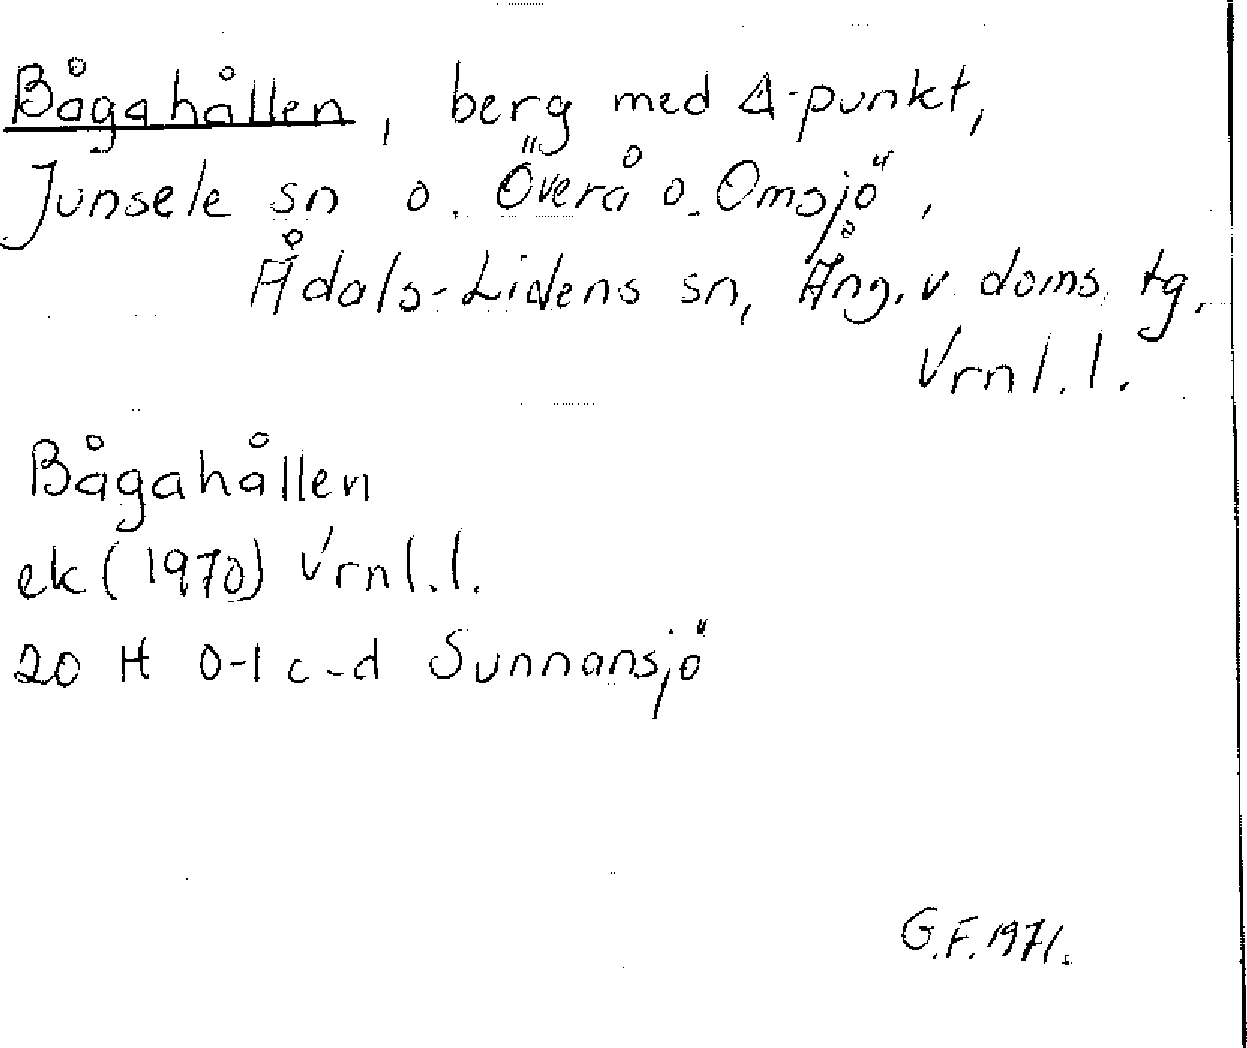 Bågahållen, berg med Δ-punkt,
Junsele sn o. Överå o. Omsjö,
Ådals-Lidens sn, Ång. v doms. tg,
Vrnl. l.
Bågahållen
ek (1970) Vrnl. l.
20 H 0-1 c-d Sunnansjö
G.F. 1971.